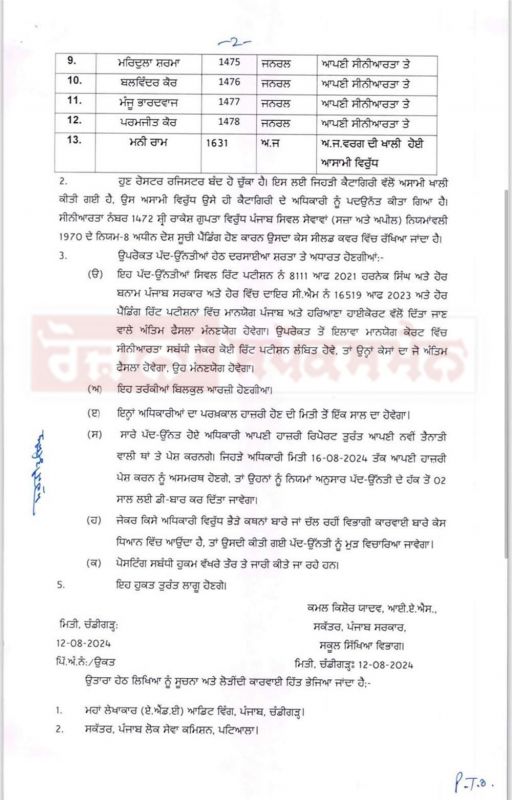 -2-
9. ਮਰਿਦੁਲਾ ਸ਼ਰਮਾ 1475 ਜਨਰਲ ਆਪਣੀ ਸੀਨੀਆਰਤਾ ਤੇ
10. ਬਲਵਿੰਦਰ ਕੌਰ 1476 ਜਨਰਲ ਆਪਣੀ ਸੀਨੀਆਰਤਾ ਤੇ
11. ਮੰਜੂ ਭਾਰਦਵਾਜ 1477 ਜਨਰਲ ਆਪਣੀ ਸੀਨੀਆਰਤਾ ਤੇ
12. ਪਰਮਜੀਤ ਕੌਰ 1478 ਜਨਰਲ ਆਪਣੀ ਸੀਨੀਆਰਤਾ ਤੇ
13. ਮਨੀ ਰਾਮ 1631 ਅ.ਜ ਅ.ਜ.ਵਰਗ ਦੀ ਖਾਲੀ ਹੋਈ
ਆਸਾਮੀ ਵਿਰੁੱਧ
2. ਹੁਣ ਰੋਸਟਰ ਰਜਿਸਟਰ ਬੰਦ ਹੋ ਚੁੱਕਾ ਹੈ। ਇਸ ਲਈ ਜਿਹੜੀ ਕੈਟਾਗਿਰੀ ਵੱਲੋਂ ਅਸਾਮੀ ਖਾਲੀ
ਕੀਤੀ ਗਈ ਹੈ, ਉਸ ਅਸਾਮੀ ਵਿਰੁਧ ਉਸੇ ਹੀ ਕੈਟਾਗਿਰੀ ਦੇ ਅਧਿਕਾਰੀ ਨੂੰ ਪਦਉਨੱਤ ਕੀਤਾ ਗਿਆ ਹੈ।
ਸੀਨੀਆਰਤਾ ਨੰਬਰ 1472 ਸ੍ਰੀ ਰਾਕੇਸ਼ ਗੁਪਤਾ ਵਿਰੁੱਧ ਪੰਜਾਬ ਸਿਵਲ ਸੇਵਾਵਾਂ (ਸਜ਼ਾ ਅਤੇ ਅਪੀਲ) ਨਿਯਮਾਂਵਲੀ
1970 ਦੇ ਨਿਯਮ-8 ਅਧੀਨ ਦੋਸ਼ ਸੂਚੀ ਪੈਂਡਿੰਗ ਹੋਣ ਕਾਰਨ ਉਸਦਾ ਕੇਸ ਸੀਲਡ ਕਵਰ ਵਿੱਚ ਰੱਖਿਆ ਜਾਂਦਾ ਹੈ।
3. ਉਪਰੋਕਤ ਪਦ-ਉੱਨਤੀਆਂ ਹੇਠ ਦਰਸਾਈਆ ਸ਼ਰਤਾ ਤੇ ਅਧਾਰਤ ਹੋਣਗੀਆਂ:-
(ੳ) ਇਹ ਪੱਦ-ਉੱਨਤੀਆਂ ਸਿਵਲ ਰਿੱਟ ਪਟੀਸ਼ਨ ਨੰ 8111 ਆਫ 2021 ਹਰਨੇਕ ਸਿੰਘ ਅਤੇ ਹੋਰ
ਬਨਾਮ ਪੰਜਾਬ ਸਰਕਾਰ ਅਤੇ ਹੋਰ ਵਿੱਚ ਦਾਇਰ ਸੀ.ਐਮ ਨੰ 16519 ਆਫ 2023 ਅਤੇ ਹੋਰ
ਪੈਂਡਿੰਗ ਰਿੱਟ ਪਟੀਸ਼ਨਾਂ ਵਿੱਚ ਮਾਨਯੋਗ ਪੰਜਾਬ ਅਤੇ ਹਰਿਆਣਾ ਹਾਈਕੋਰਟ ਵੱਲੋਂ ਦਿੱਤਾ ਜਾਣ
ਵਾਲੇ ਅੰਤਿਮ ਫੈਸਲਾ ਮੰਨਣਯੋਗ ਹੋਵੇਗਾ। ਉਪਰੋਕਤ ਤੋਂ ਇਲਾਵਾ ਮਾਨਯੋਗ ਕੋਰਟ ਵਿੱਚ
ਸੀਨੀਆਰਤਾ ਸਬੰਧੀ ਜੇਕਰ ਕੋਈ ਰਿੱਟ ਪਟੀਸ਼ਨ ਲੰਬਿਤ ਹੋਵੇ, ਤਾਂ ਉਨ੍ਹਾਂ ਕੇਸਾਂ ਦਾ ਜੋ ਅੰਤਿਮ
ਫੈਸਲਾ ਹੋਵੇਗਾ, ਉਹ ਮੰਨਣਯੋਗ ਹੋਵੇਗਾ।
(ਅ) ਇਹ ਤਰੱਕੀਆਂ ਬਿਲਕੁਲ ਆਰਜ਼ੀ ਹੋਣਗੀਆ।
(ੲ) ਇਨ੍ਹਾਂ ਅਧਿਕਾਰੀਆਂ ਦਾ ਪਰਖਕਾਲ ਹਾਜ਼ਰੀ ਹੋਣ ਦੀ ਮਿਤੀ ਤੋਂ ਇੱਕ ਸਾਲ ਦਾ ਹੋਵੇਗਾ।
(ਸ) ਸਾਰੇ ਪੱਦ-ਉੱਨਤ ਹੋਏ ਅਧਿਕਾਰੀ ਆਪਣੀ ਹਾਜ਼ਰੀ ਰਿਪੋਰਟ ਤੁਰੰਤ ਆਪਣੀ ਨਵੀਂ ਤੈਨਾਤੀ
ਵਾਲੀ ਥਾਂ ਤੇ ਪੇਸ਼ ਕਰਨਗੇ। ਜਿਹੜੇ ਅਧਿਕਾਰੀ ਮਿਤੀ 16-08-2024 ਤੱਕ ਆਪਣੀ ਹਾਜ਼ਰੀ
ਪੇਸ਼ ਕਰਨ ਨੂੰ ਅਸਮਰਥ ਹੋਣਗੇ, ਤਾਂ ਉਹਨਾਂ ਨੂੰ ਨਿਯਮਾਂ ਅਨੁਸਾਰ ਪਦ-ਉੱਨਤੀ ਦੇ ਹੱਕ ਤੋਂ 02
ਸਾਲ ਲਈ ਡੀ-ਬਾਰ ਕਰ ਦਿੱਤਾ ਜਾਵੇਗਾ।
(ਹ) ਜੇਕਰ ਕਿਸੇ ਅਧਿਕਾਰੀ ਵਿਰੁੱਧ ਝੂਠੇ ਕਥਨਾਂ ਬਾਰੇ ਜਾਂ ਚੱਲ ਰਹੀਂ ਵਿਭਾਗੀ ਕਾਰਵਾਈ ਬਾਰੇ ਕੇਸ
ਧਿਆਨ ਵਿੱਚ ਆਉਂਦਾ ਹੈ, ਤਾਂ ਉਸਦੀ ਕੀਤੀ ਗਈ ਪੱਦ-ਉੱਨਤੀ ਨੂੰ ਮੁੜ ਵਿਚਾਰਿਆ ਜਾਵੇਗਾ।
(ਕ) ਪੋਸਟਿੰਗ ਸਬੰਧੀ ਹੁਕਮ ਵੱਖਰੇ ਤੌਰ ਤੇ ਜਾਰੀ ਕੀਤੇ ਜਾ ਰਹੇ ਹਨ।
5. ਇਹ ਹੁਕਤ ਤੁਰੰਤ ਲਾਗੂ ਹੋਣਗੇ।
ਕਮਲ ਕਿਸ਼ੋਰ ਯਾਦਵ, ਆਈ.ਏ.ਐਸ.,
ਮਿਤੀ, ਚੰਡੀਗੜ੍ਹ: ਸਕੱਤਰ, ਪੰਜਾਬ ਸਰਕਾਰ,
12-08-2024 ਸਕੂਲ ਸਿੱਖਿਆ ਵਿਭਾਗ।
ਪਿੱ.ਅੰ.ਨੰ:/ਉਕਤ ਮਿਤੀ, ਚੰਡੀਗੜ੍ਹ: 12-08-2024
ਉਤਾਰਾ ਹੇਠ ਲਿਖਿਆ ਨੂੰ ਸੂਚਨਾ ਅਤੇ ਲੋੜੀਂਦੀ ਕਾਰਵਾਈ ਹਿੱਤ ਭੇਜਿਆ ਜਾਂਦਾ ਹੈ:-
1. ਮਹਾਂ ਲੇਖਾਕਾਰ (ਏ.ਐਂਡ.ਈ) ਆਡਿਟ ਵਿੰਗ, ਪੰਜਾਬ, ਚੰਡੀਗੜ੍ਹ।
2. ਸਕੱਤਰ, ਪੰਜਾਬ ਲੋਕ ਸੇਵਾ ਕਮਿਸ਼ਨ, ਪਟਿਆਲਾ।
P.T.O.